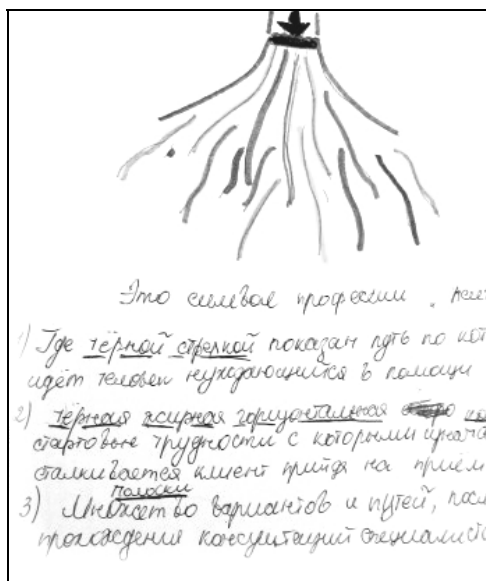 Это символ профессии.
1) Где чёрной стрелкой показан путь по
идёт человек нуждающийся в помощи
2) чёрная жирная горизонтальная
стартовые трудности с которыми
сталкивается клиент прийдя на приём
полоски
3) Множество вариантов и путей,
прохождения консультаций